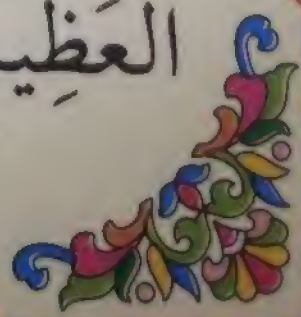 العَظِي